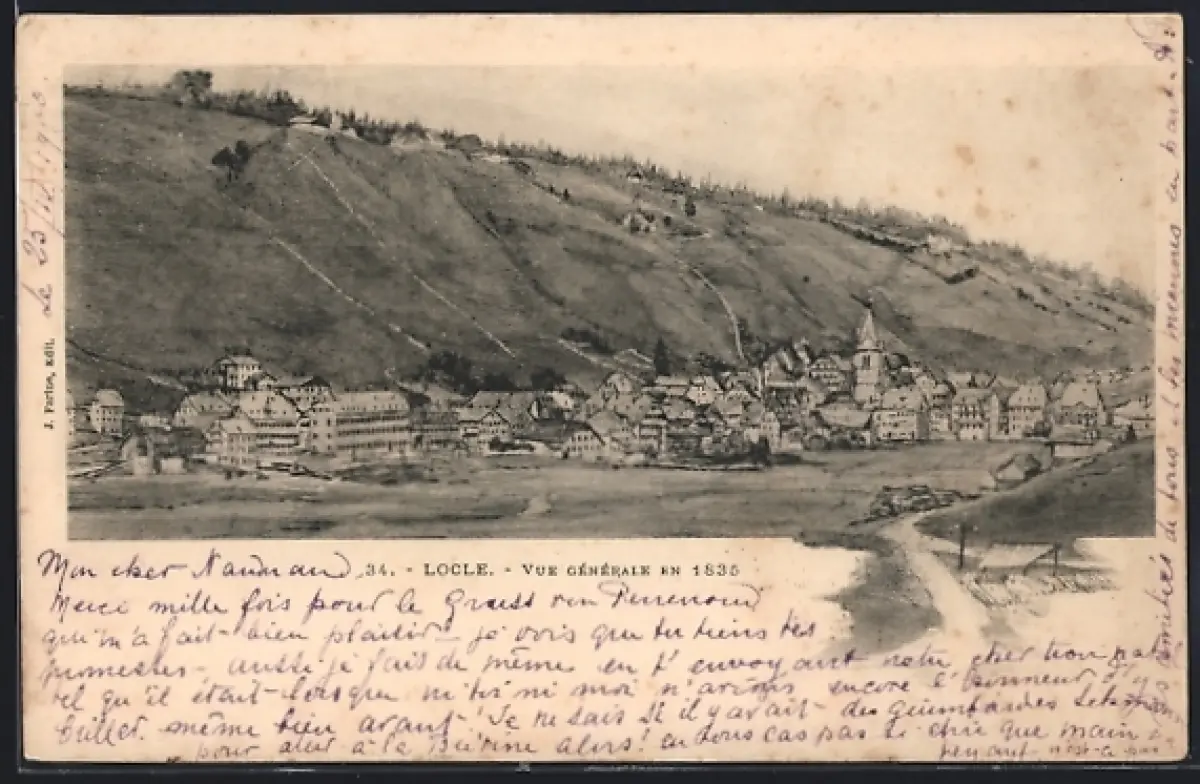 Le 25/12/1900
J. Farlon, Edit.
34. - LOCLE. - VUE GÉNÉRALE EN 1835
Mon cher Naumann
Merci mille fois pour le Gruss von Perrenoud
qui m'a fait bien plaisir je vois que tu tiens tes
promesses. aussi je fais de même en t'envoyant notre cher
tel qu'il était lorsque ni toi ni moi n'avions encore l'honneur d'y
même bien avant! Je ne sais s'il y avait des guimbardes
pour aller à la alors! en tous cas pas si chic que main
tenant n'est-ce pas
de tous les membres en haut